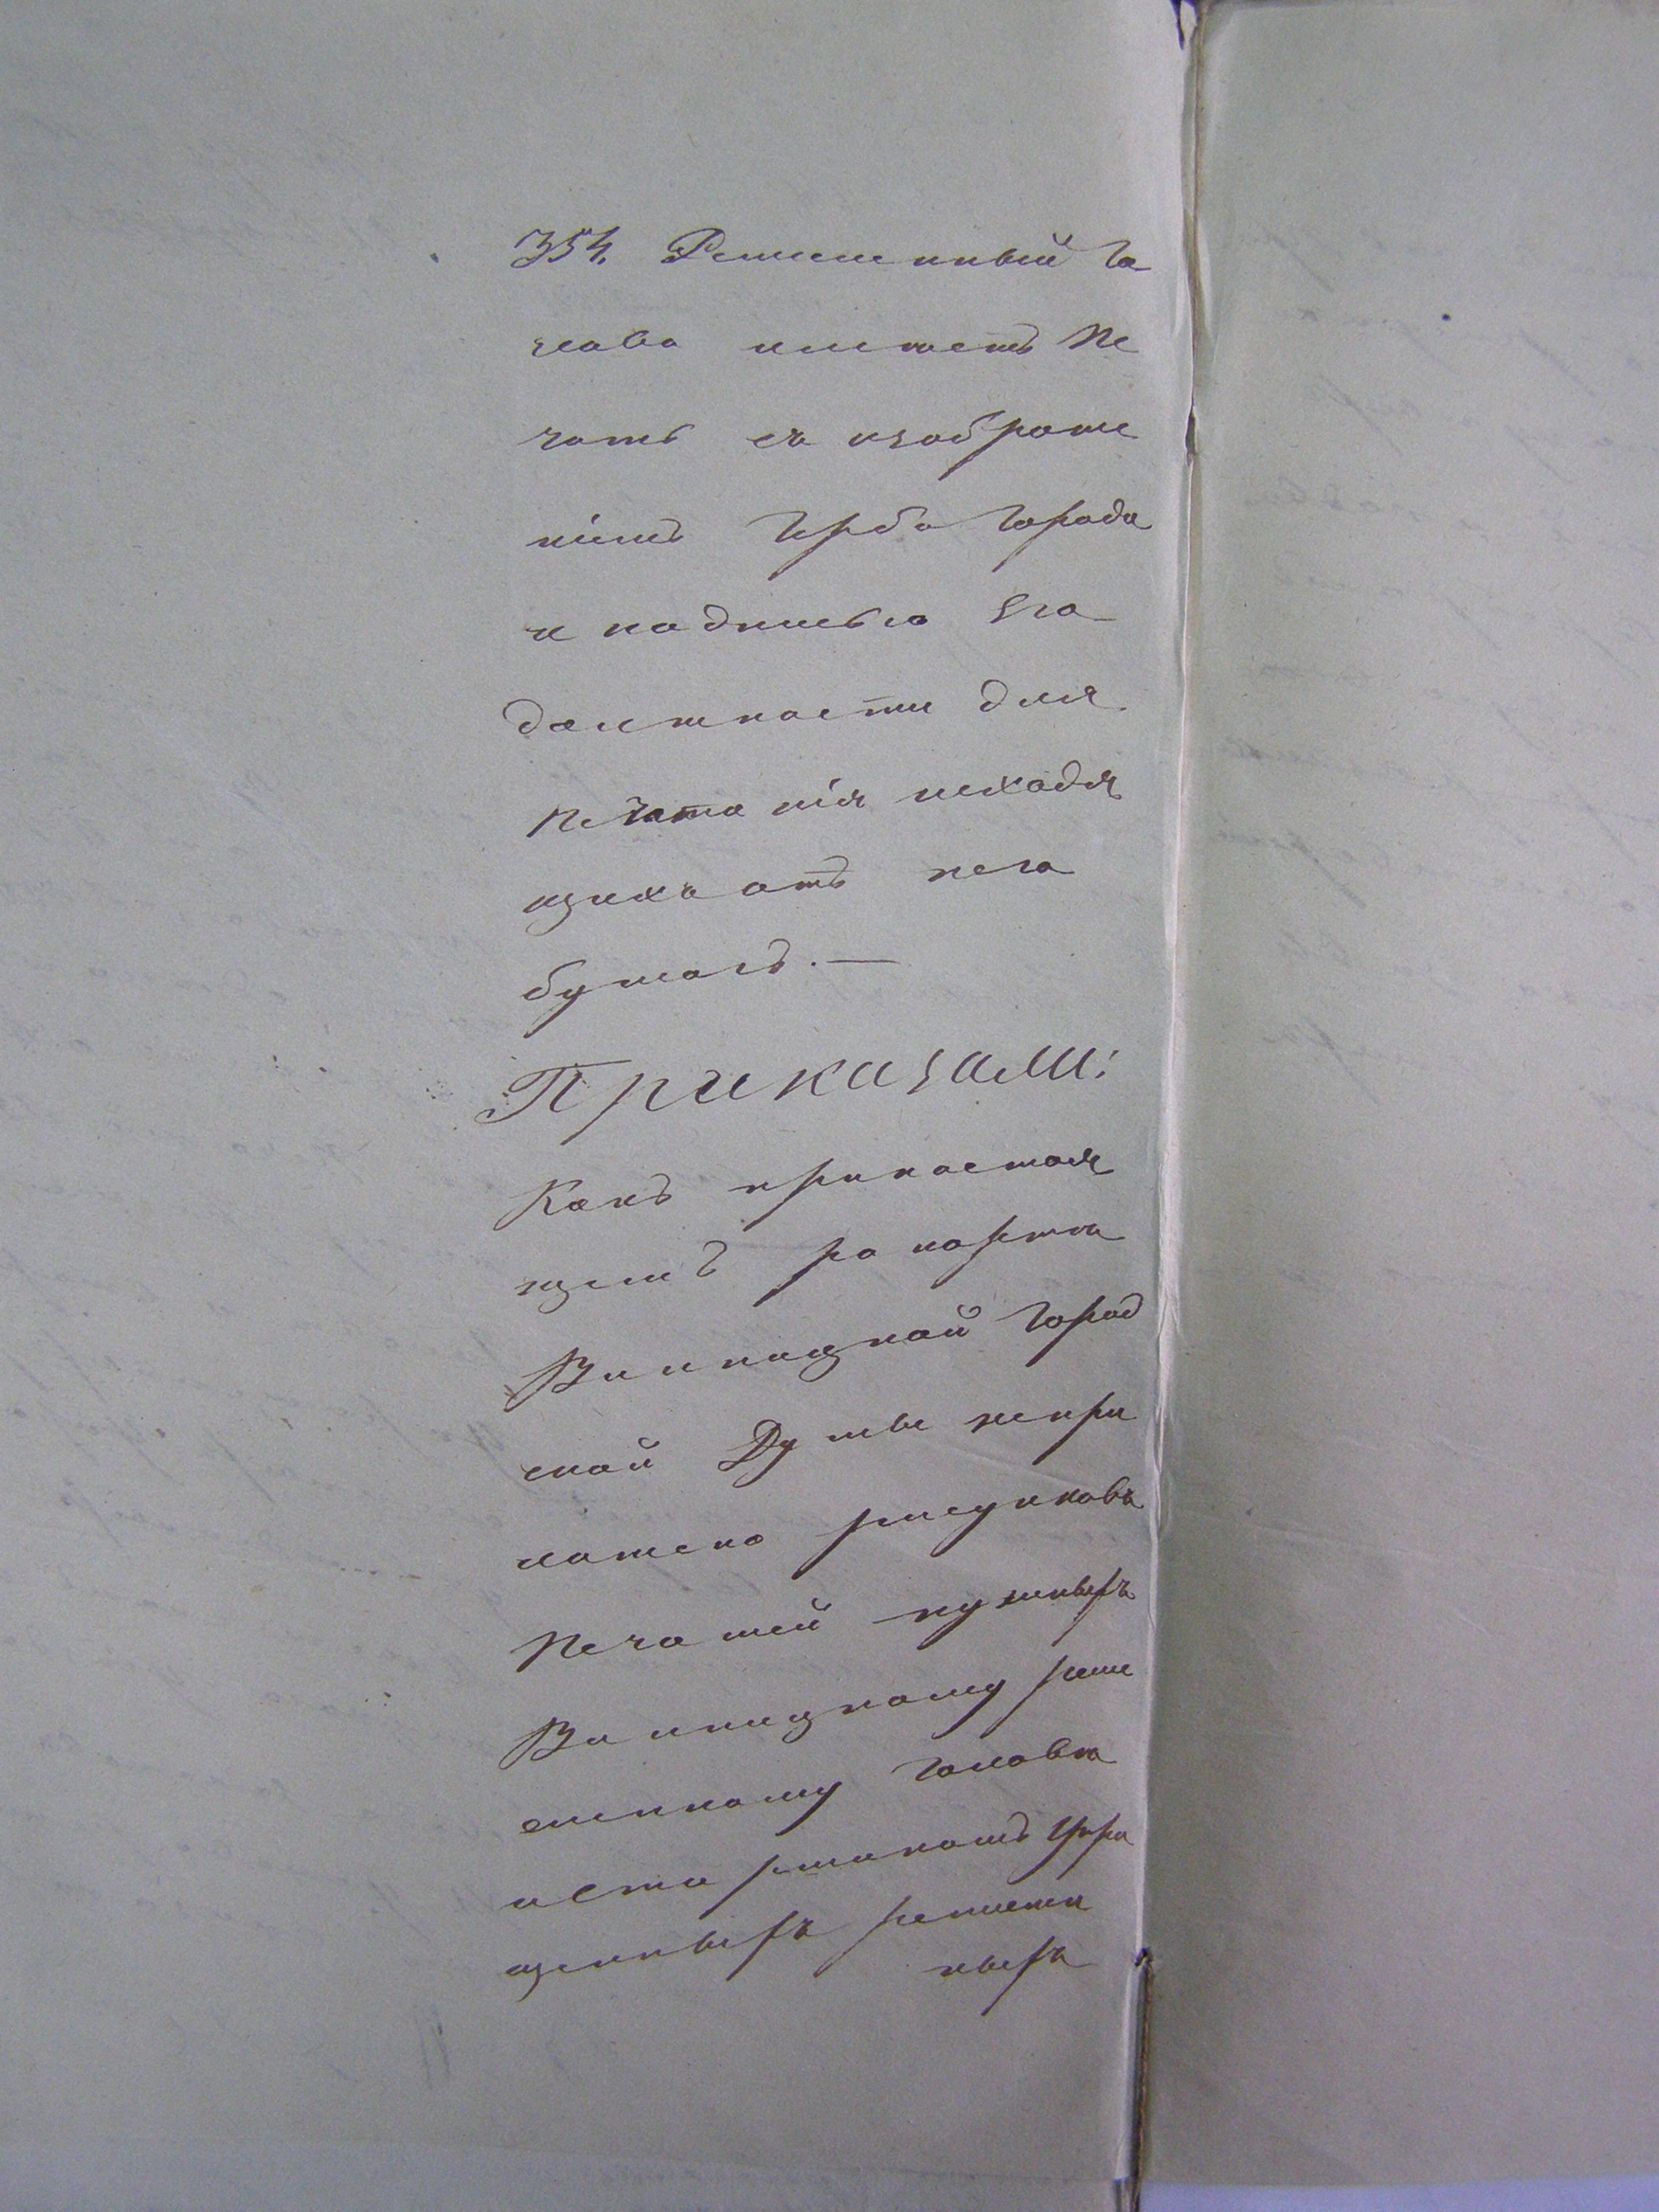 354. Ремесленный Го
лова имѣетъ Пе
чать съ изображе
ніемъ Герба Города
и надписью Его
должности для
Печатанія исходя
щихъ отъ него
бумагъ. —
Приказали:
Какъ при настоя
щемъ рапортѣ
Винницкой Город
ской Думы непри
ложено рисунковъ
Печатей нужныхъ
Винницкому реме
сленному Головѣ
и Старшинамъ Упра
щенныхъ ремеслен
ныхъ